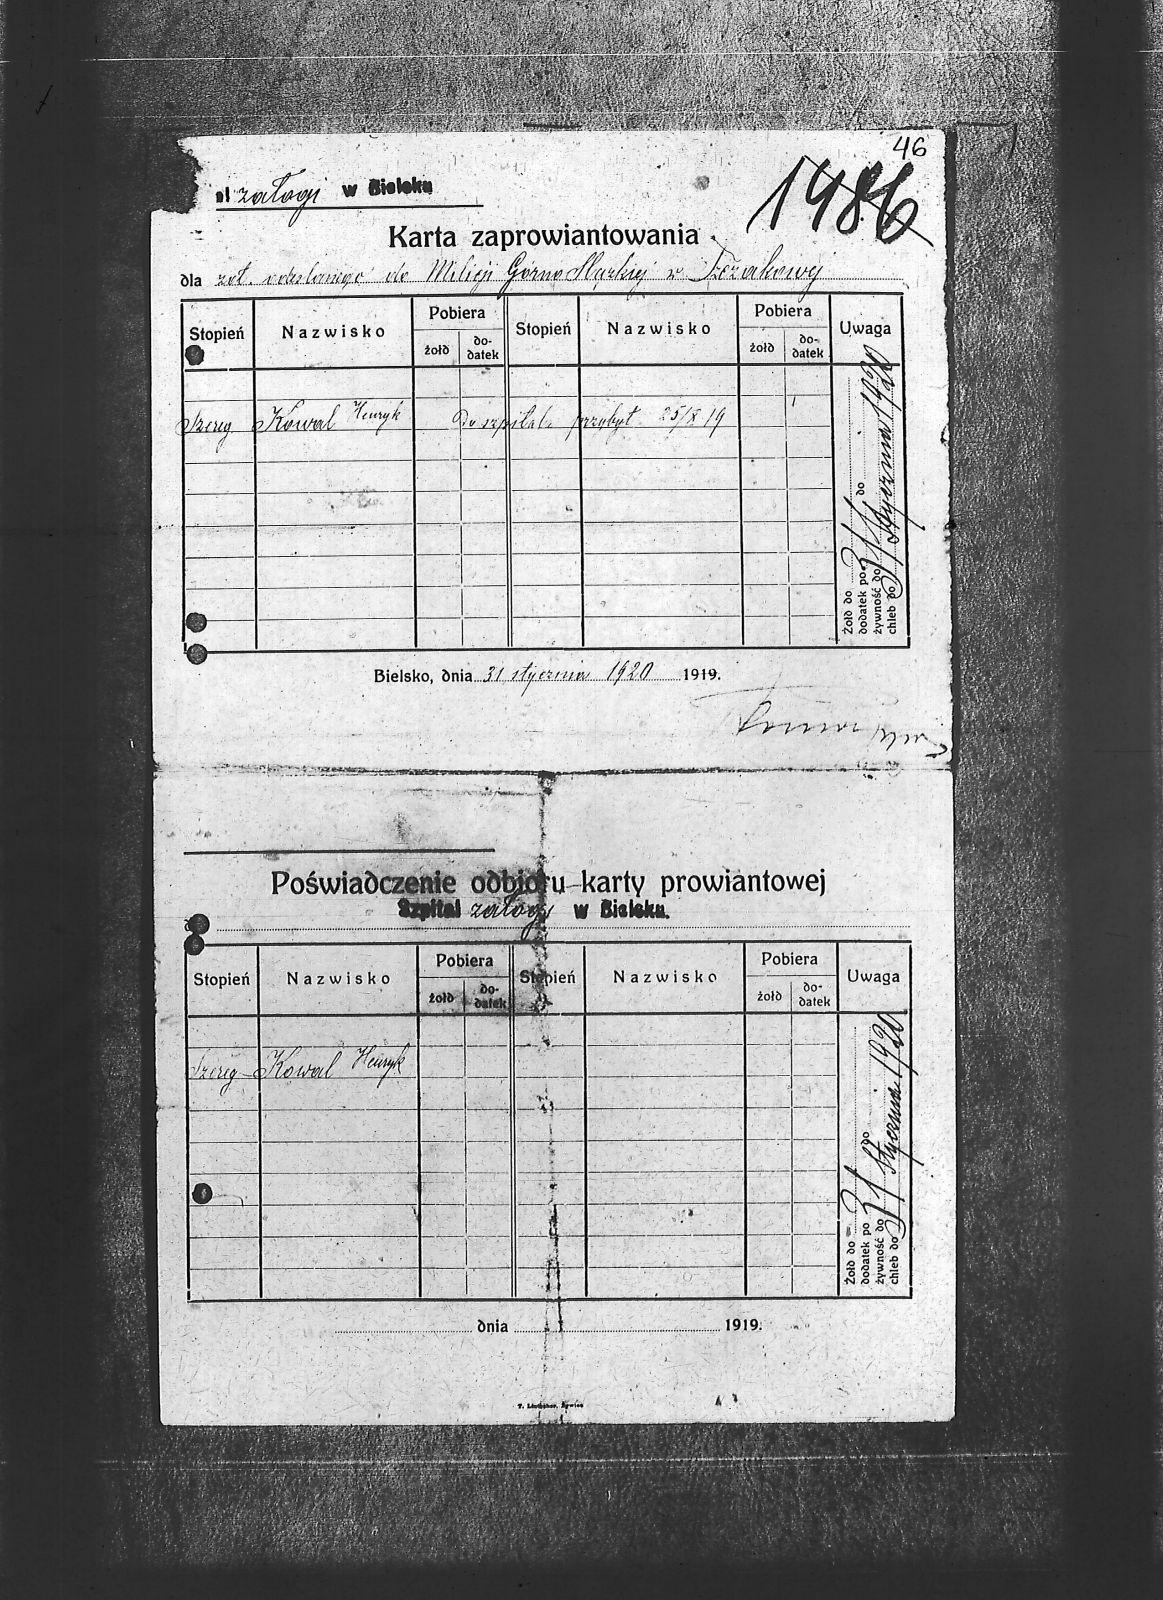 46
1486
załogi w Bielsku
Karta zaprowiantowania
dla żoł. odesłanego do Milicji Górno Śląskiej w Szczakowej
Stopień Nazwisko Pobiera żołd do-datek Stopień Nazwisko Pobiera żołd do-datek Uwaga
Szereg Kowal Henryk Do szpitala przybył 25/X 19
Żołd do
dodatek po do
żywność do 31 stycznia 1920
chleb do
Bielsko, dnia 31 stycznia 1920 1919.
Poświadczenie odbioru karty prowiantowej
Szpital załogi w Bielsku.
Stopień Nazwisko Pobiera żołd do-datek Stopień Nazwisko Pobiera żołd do-datek Uwaga
Szereg Kowal Henryk
Żołd do
dodatek po do
żywność do 31 stycznia 1920
chleb do
dnia 1919.